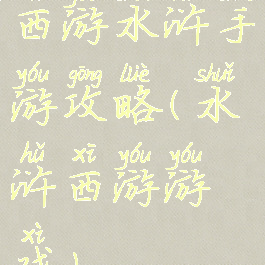 西游水浒手
yóu gōng lüè shuǐ
游攻略(水
hǔ xī yóu yóu
浒西游游
xì
戏)